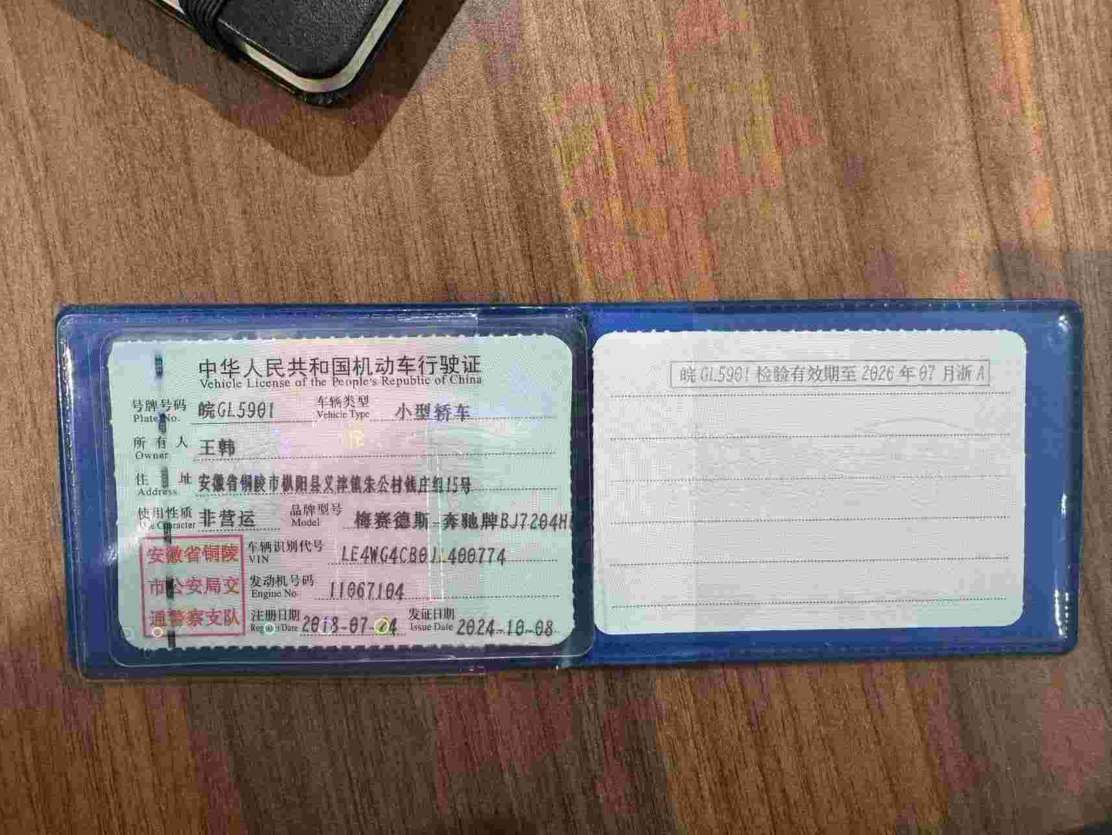 中华人民共和国机动车行驶证
Vehicle License of the People's Republic of China
号牌号码 皖GL5901 车辆类型 小型轿车
Plate No. Vehicle Type
所有人 王韩
Owner
住址 安徽省铜陵市枞阳县义津镇朱公村钱庄组15号
Address
使用性质 非营运 品牌型号 梅赛德斯-奔驰牌BJ7204H
Use Character Model
安徽省铜陵
市公安局交
通警察支队
车辆识别代号
VIN
发动机号码 11067104
Engine No.
注册日期 发证日期 2024-10-08
Register Date Issue Date
皖GL5901检验有效期至2026年07月浙A